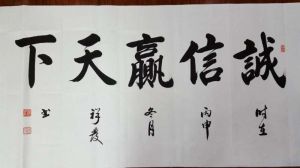 誠信贏天下
时在
丙申
冬月
祥发
书